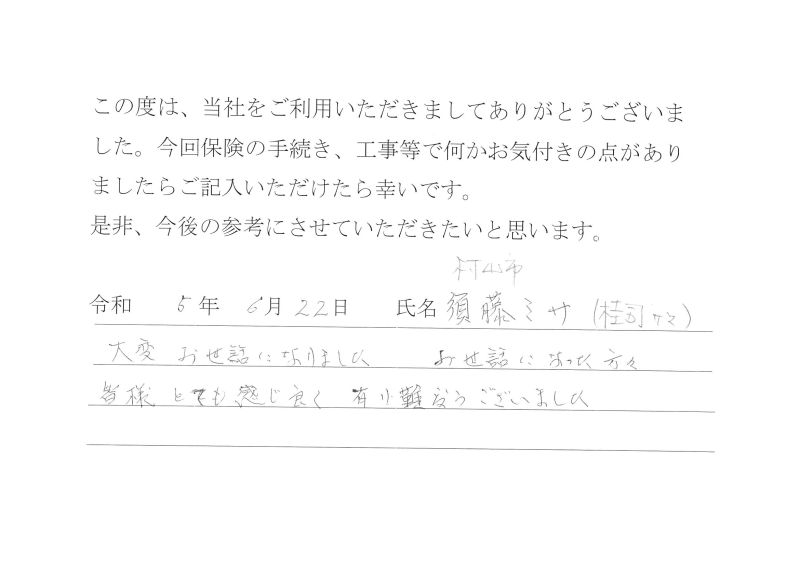 この度は、当社をご利用いただきましてありがとうございま
した。今回保険の手続き、工事等で何かお気付きの点があり
ましたらご記入いただけたら幸いです。
是非、今後の参考にさせていただきたいと思います。
村山市
令和 5年 6月22日 氏名 須藤ミサ (桂司
大変 お世話になりました お世話になった方々
皆様 とても感じ良く 有り難うございました